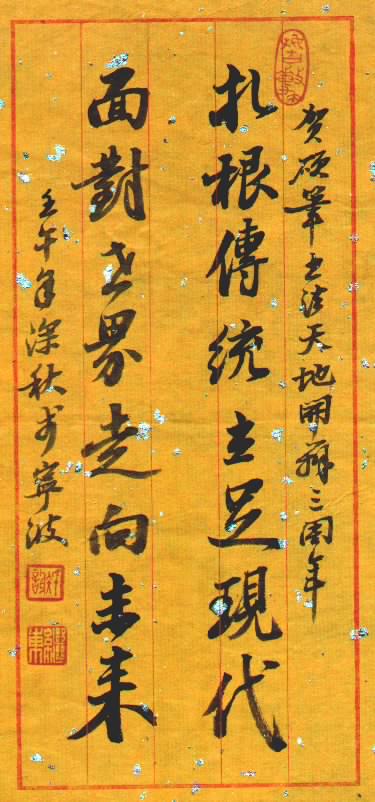 賀硯筆書法天地開辟三周年
扎根傳統立足現代
面對世界走向未来
壬午年深秋於寧波